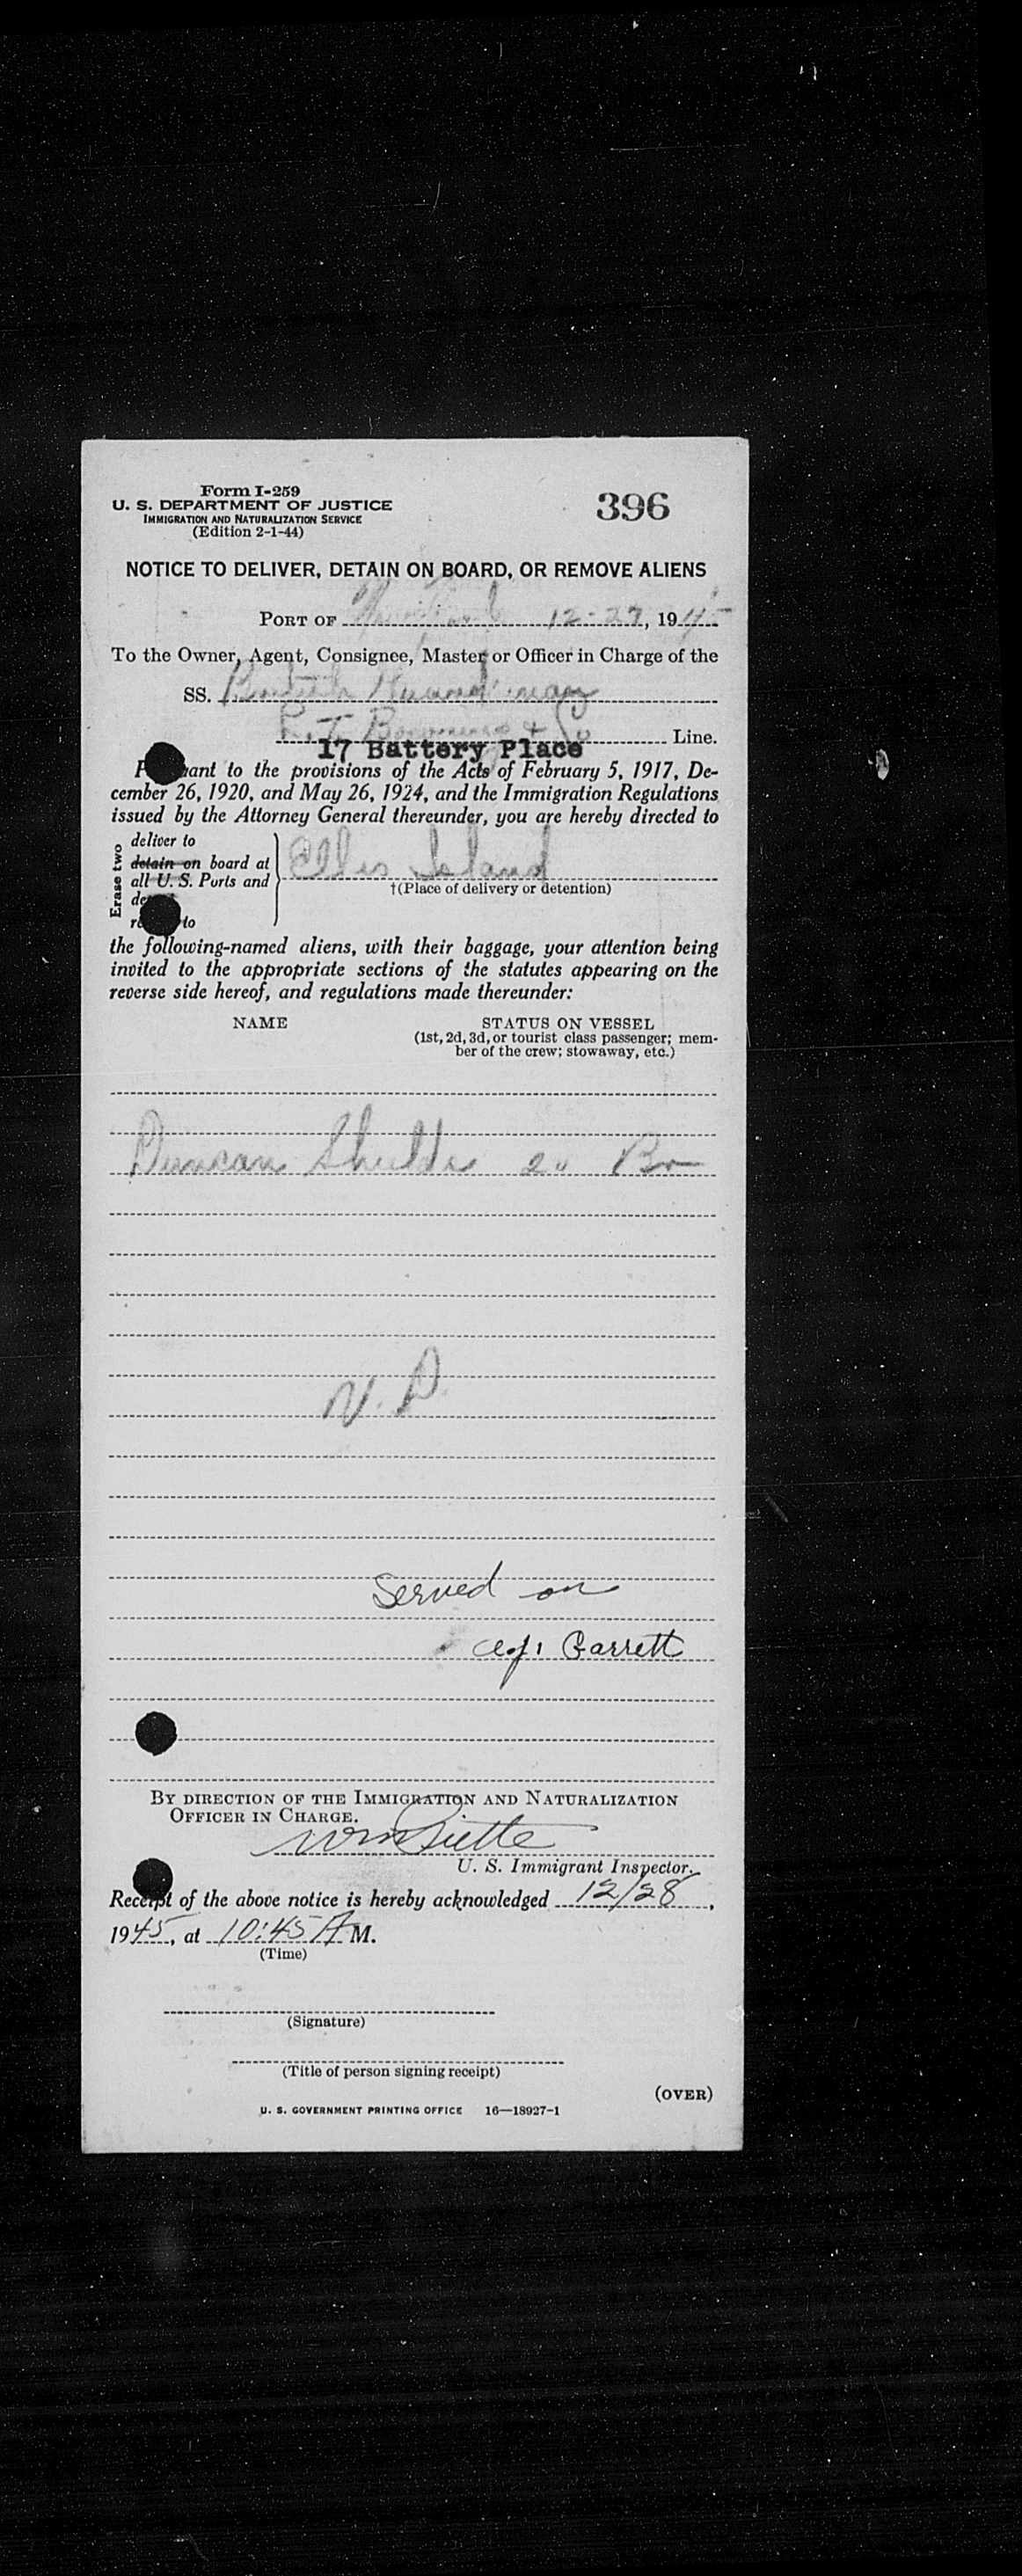 Form I-259
U. S. DEPARTMENT OF JUSTICE
IMMIGRATION AND NATURALIZATION SERVICE
(Edition 2-1-44)
396
NOTICE TO DELIVER, DETAIN ON BOARD, OR REMOVE ALIENS
PORT OF New York 12-27, 1945
To the Owner, Agent, Consignee, Master or Officer in Charge of the
SS. British
& Co Line.
17 Battery Place
to the provisions of the Acts of February 5, 1917, De-
cember 26, 1920, and May 26, 1924, and the Immigration Regulations
issued by the Attorney General thereunder, you are hereby directed to
Erase two
deliver to
detain on board at
all U. S. Ports and
to
Ellis Island
†(Place of delivery or detention)
the following-named aliens, with their baggage, your attention being
invited to the appropriate sections of the statutes appearing on the
reverse side hereof, and regulations made thereunder:
NAME
STATUS ON VESSEL
(1st, 2d, 3d, or tourist class passenger; mem-
ber of the crew; stowaway, etc.)
Duncan Shields 20 Br
V. D.
Served on
Garrett
BY DIRECTION OF THE IMMIGRATION AND NATURALIZATION
OFFICER IN CHARGE.
U. S. Immigrant Inspector.
Receipt of the above notice is hereby acknowledged 12/28,
1945, at 10:45 A M.
(Time)
(Signature)
(Title of person signing receipt)
(OVER)
U. S. GOVERNMENT PRINTING OFFICE 16—18927-1